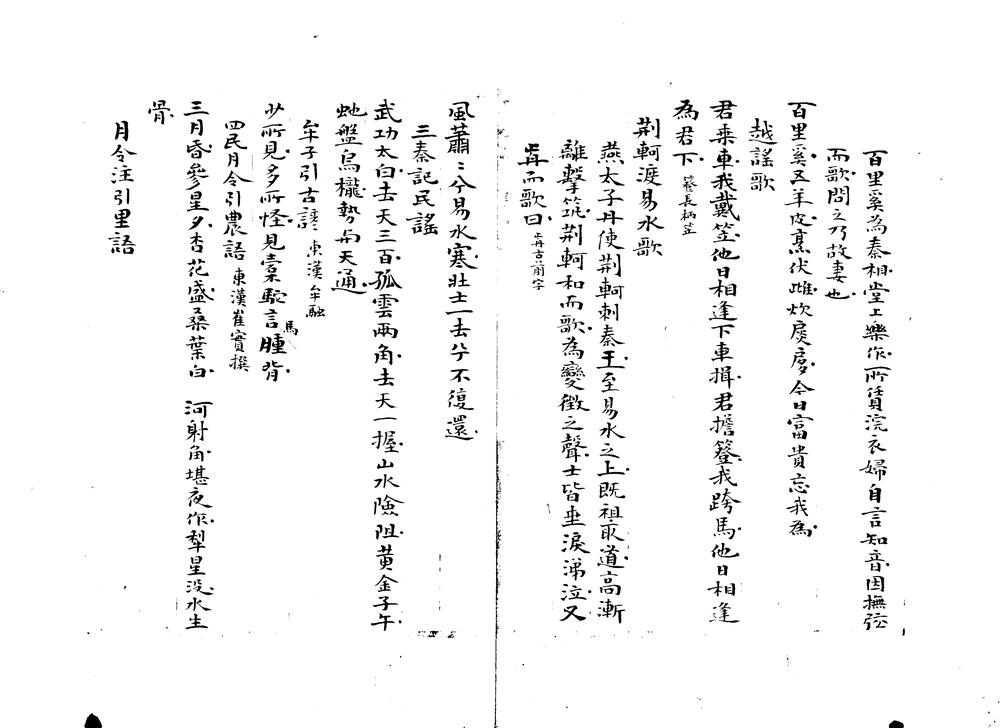 百里奚為秦相堂上樂作所賃浣衣婦自言知音因撫弦
而歌問之乃故妻也
百里奚五羊皮烹伏雌炊扊扅今日富貴忘我為
越謠歌
君乘車我戴笠他日相逢下車揖君擔簦我跨馬他日相逢
為君下 簦長柄笠
荆軻渡易水歌
燕太子丹使荆軻刺秦王至易水之上既祖取道高漸
離擊筑荆軻和而歌為變徵之聲士皆垂淚涕泣又
歬而歌曰 歬古前字
風蕭〻兮易水寒壯士一去兮不復還
三秦記民謠
武功太白去天三百孤雲兩角去天一握山水險阻黃金子午
虵盤烏櫳勢与天通
牟子引古諺 東漢牟融
少所見多所怪見橐駝言馬腫背
四民月令引農語 東漢崔寔撰
三月昏參星夕杏花盛桑葉白 河射角堪夜作犁星没水生
骨
月令注引里語